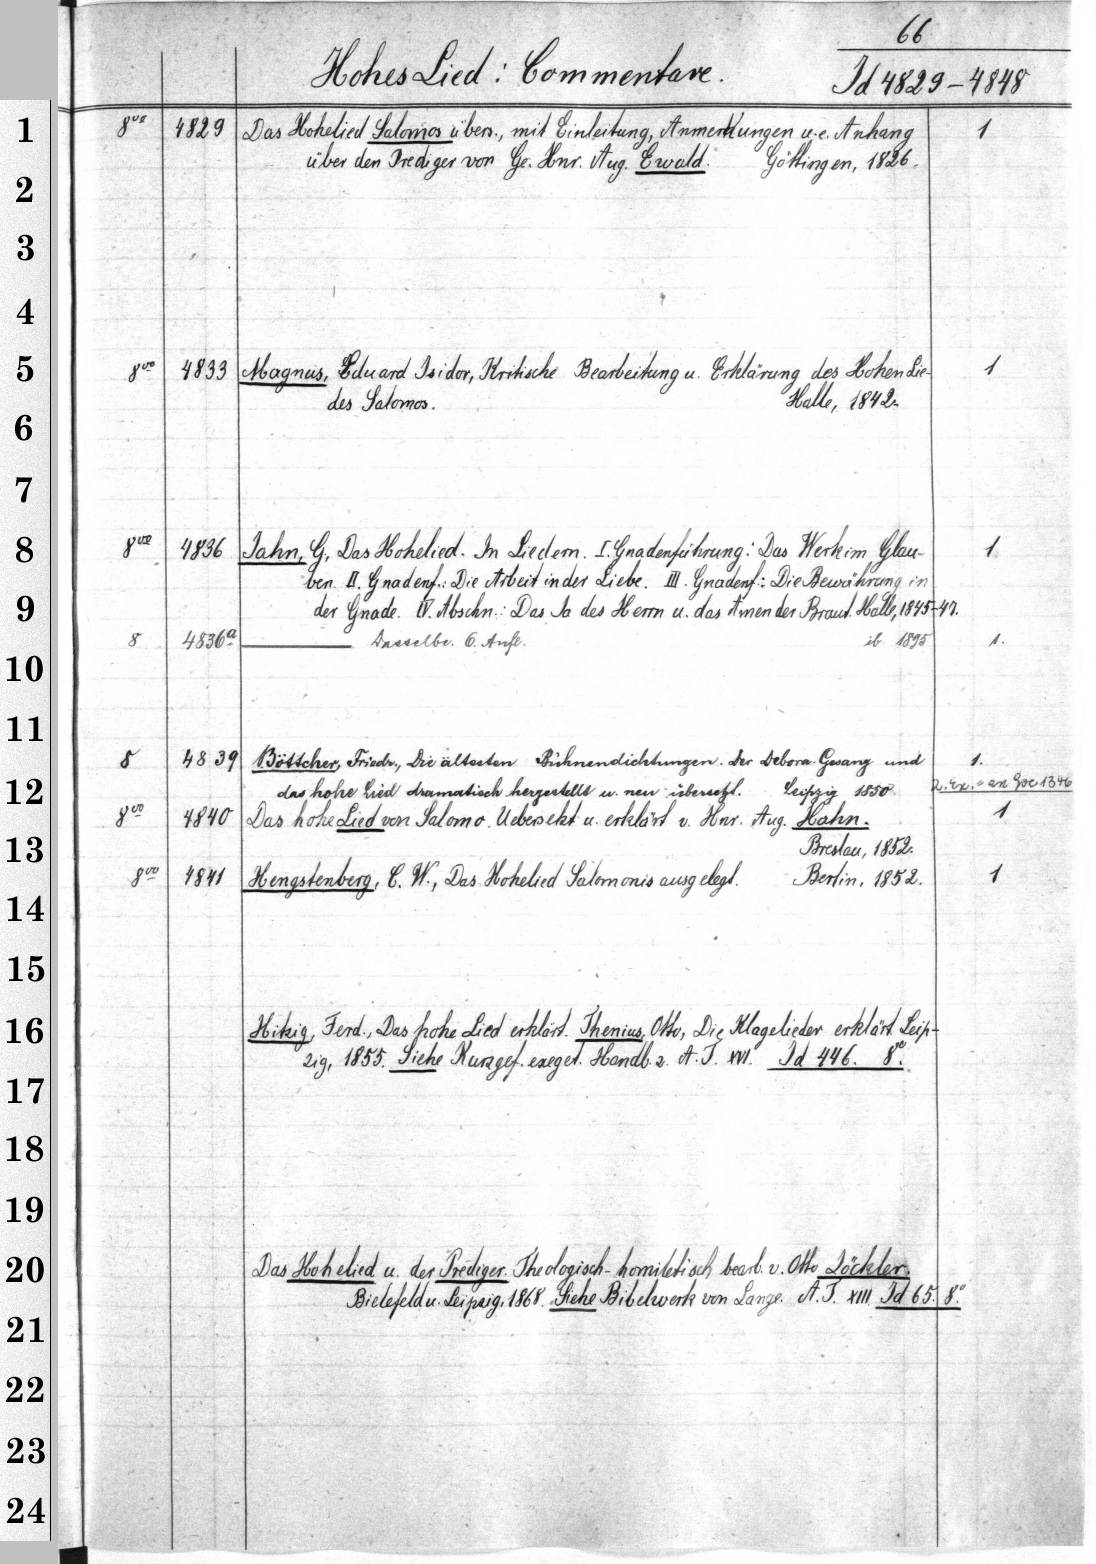 66
Hohes Lied: Commentare.
Id 4829-4848
1
8vo 4829 Das Hohelied Salomos übers., mit Einleitung, Anmerkungen u. e. Anhang 1
über den Prediger von Ge. Hnr. Aug. Ewald. Göttingen, 1826.
2
3
4
5
8vo 4833 Magnus, Eduard Isidor, Kritische Bearbeitung u. Erklärung des Hohen Lie- 1
des Salomos. Halle, 1842.
6
7
8
8vo 4836 Jahn, G., Das Hohelied. In Liedern. I. Gnadenführung: Das Werk im Glau- 1
ben. II. Gnadenf.: Die Arbeit in der Liebe. III. Gnadenf.: Die Bewährung in
9
der Gnade. IV. Abschn.: Das Ja des Herrn u. das Amen der Braut. Halle, 1845-47.
8 4836a Dasselbe. 6. Aufl. ib. 1895 1.
10
11
8 4839 Böttcher, Friedr., Die ältesten Bühnendichtungen. Der Debora Gesang und 1.
12
das hohe Lied dramatisch hergestellt u. neu übersetzt. Leipzig 1850. 2. Ex. = an 1346
8vo 4840 Das hohe Lied von Salomo. Uebersetzt u. erklärt v. Hnr. Aug. Hahn. 1
13
Breslau, 1852.
8vo 4841 Hengstenberg, E. W., Das Hohelied Salomonis ausgelegt. Berlin, 1852. 1
14
15
16
Hitzig, Ferd., Das hohe Lied erklärt. Thenius, Otto, Die Klagelieder erklärt. Leip-
zig, 1855. Siehe Kurzgef. exeget. Handb. z. A. T. XVI. Id 446. 8vo.
17
18
19
20
Das Hohelied u. der Prediger. Theologisch-homiletisch bearb. v. Otto Zöckler.
Bielefeld u. Leipzig, 1868. Siehe Bibelwerk von Lange. A. T. XIII Id 65. 8o.
21
22
23
24